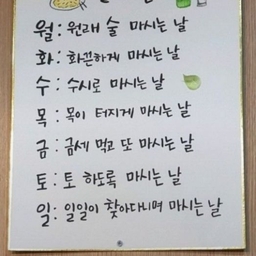 월: 원래 술 마시는 날
화: 화끈하게 마시는 날
수: 수시로 마시는 날
목: 목이 터지게 마시는 날
금: 금세 먹고 또 마시는 날
토: 토 하도록 마시는 날
일: 일일이 찾아다니며 마시는 날